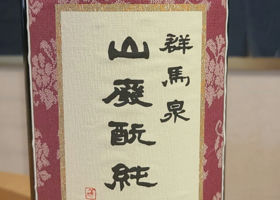 群馬泉
山廃酛純